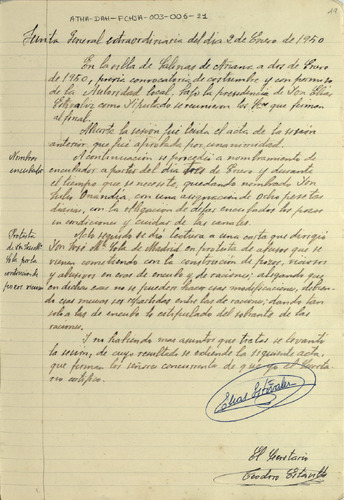 19
ATHA-DAH-FCHJA-003-006-21
Junta General extraordinaria del dia 2 de Enero de 1950
En la villa de Salinas de Añana a dos de Enero
de 1950, previa convocatoria de costumbre y con permiso
de la Autoridad local, bajo la presidencia de Don Elias
Estavillo como Diputado se reunieron los Sres que firman
al final.
Abierta la sesión fué leida el acta de la sesión
anterior que fué aprobada por unanimidad.
Nombra
encubador
A continuación se procedió a nombramiento de
encubador a partir del dia tres de Enero y durante
el tiempo que se necesite, quedando nombrado Don
Julio Orandia, con una asignación de ocho pesetas
diarias, con la obligación de dejar encubados los pozos
en condiciones y cuidar de las canales.
Protesta
Sola por la
construcción de
pozos
Acto seguido dió lectura a una carta que dirigió
Don José Mª Sola de Madrid en protesta de abusos que se
vienen cometiendo con la construcción de pozos, viciosos
y abusivos, en eras de encubo y de raciones; alegando que
en dichas eras no se pueden hacer esas modificaciones, debien
do esas mueras ser repartidas entre las de raciones, dando tan
solo a las de encubo lo estipulado del sobrante de las
raciones.
Y no habiendo mas asuntos que tratar se levantó
la sesión, de cuyo resultado se extiende la siguiente acta,
que firman los señores concurrentes de que yo el Secreta
rio certifico.
Elias Estavillo
El Secretario
Teodoro Estavillo